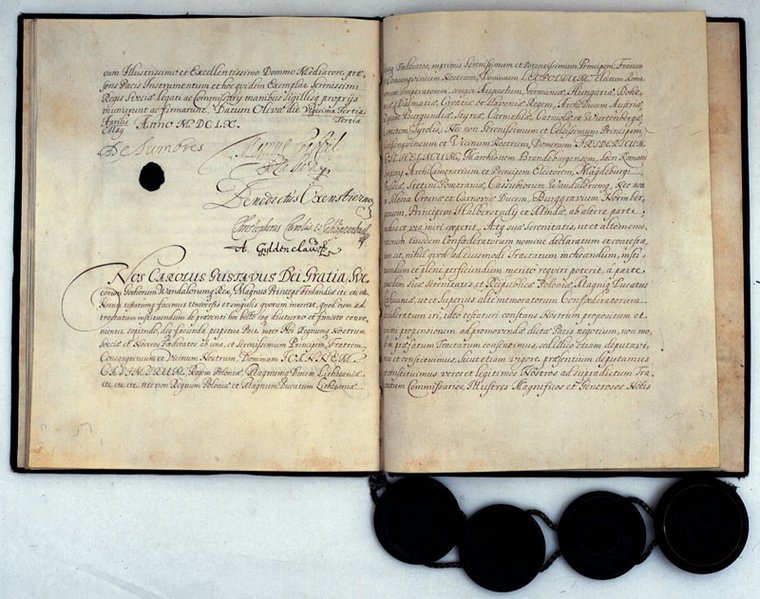 cum Illustrissimo et Excellentissimo Domino Mediatore, præ-
sens Pacis Instrumentum et hoc quidem Exemplar Serenissimi
Regis Sveciæ legati ac Commissarÿ manibus sigillisq; proprÿs
muniverunt ac firmarunt. Datum Olivæ die Vigesima Tertia
Aprilis
Maÿ Anno MDCLX. Tertia
De Lumbres
Benedictus Oxenstierna
Christophorus Carolus à Schlippenbach
A. Gÿldenclau
Nos CAROLUS GUSTAVUS Dei Gratia Sve-
corum Gothorum Wandalorumq; Rex, Magnus Princeps Finlandiæ etc. etc. etc.
Notum testatumq; facimus Universis et singulis quorum interest, quod cum ad
tractatum instituendum de præsenti hoc bello
Sveciæ et Nostros Fœderatos ab una, et Serenissimum Principem, Fratrem,
Consangvineum et Vicinum Nostrum Dominum JOHANNEM
CASIMIRUM, Regem Poloniæ, Magnumq; Ducem Lithuaniæ
etc. etc. etc. nec non Regnum Poloniæ et Magnum Ducatum Lithuaniæ
Fœderatos, inprimis Serenissimum et Potentissimum Principem, Fratrem
Consangvineum Nostrum, Dominum LEOPOLDUM, Electum Roma-
Imperatorem, semper Augustum, Germaniæ, Hungariæ, Bohe-
Dalmatiæ, Croatiæ et Slavoniæ Regem, Archi Ducem Austriæ,
Burgundiæ, Styriæ, Carinthiæ, Carniolæ et Wirtenbergæ,
Comitem Tyrolis, Nec non Serenissimum et Celsissimum Principem
Consangvineum et Vicinum Nostrum, Dominum FRIDERICUM
WILHELMUM, Marchionem Brandeburgensem, Sacri Romani
Archicamerarium et Principem Electorem, Magdeburgi
Stetini Pomeraniæ, Cassubiorum Wandalorumq; Nec non
Silesia Crosnæ et Carnoviæ Ducem, Burggravium Norimber-
Principem Halberstadÿ et Mindæ, ab altera parte
et via iniri cæperit, Atq; sua Serenitatis, ut et alte memo-
Eorundem Confœderatorum nomine declaratum et contesta-
sit, nihil quod ad ejusmodi Tractatum inchoandum, insti-
et plene perficiendum merito requiri poterit, a parte
Suæ Serenitatis et Reipublicæ Poloniæ, Magniq; Ducatus
Lithuaniæ, ut et Superius alte memoratorum Confœderatorum
iri, ideo testaturi constans Nostrum propositum et
propensionem ad promovendum dictæ Pacis negotium, non mo-
in præfatum Tractatum consensimus, sed et deputavi-
et constituimus, sicut etiam vigore præsentium deputamus
constituimus veros et legitimos Nostros ad supradictum Tra-
Commissarios, Illustres Magnificos et Generosos Nobis